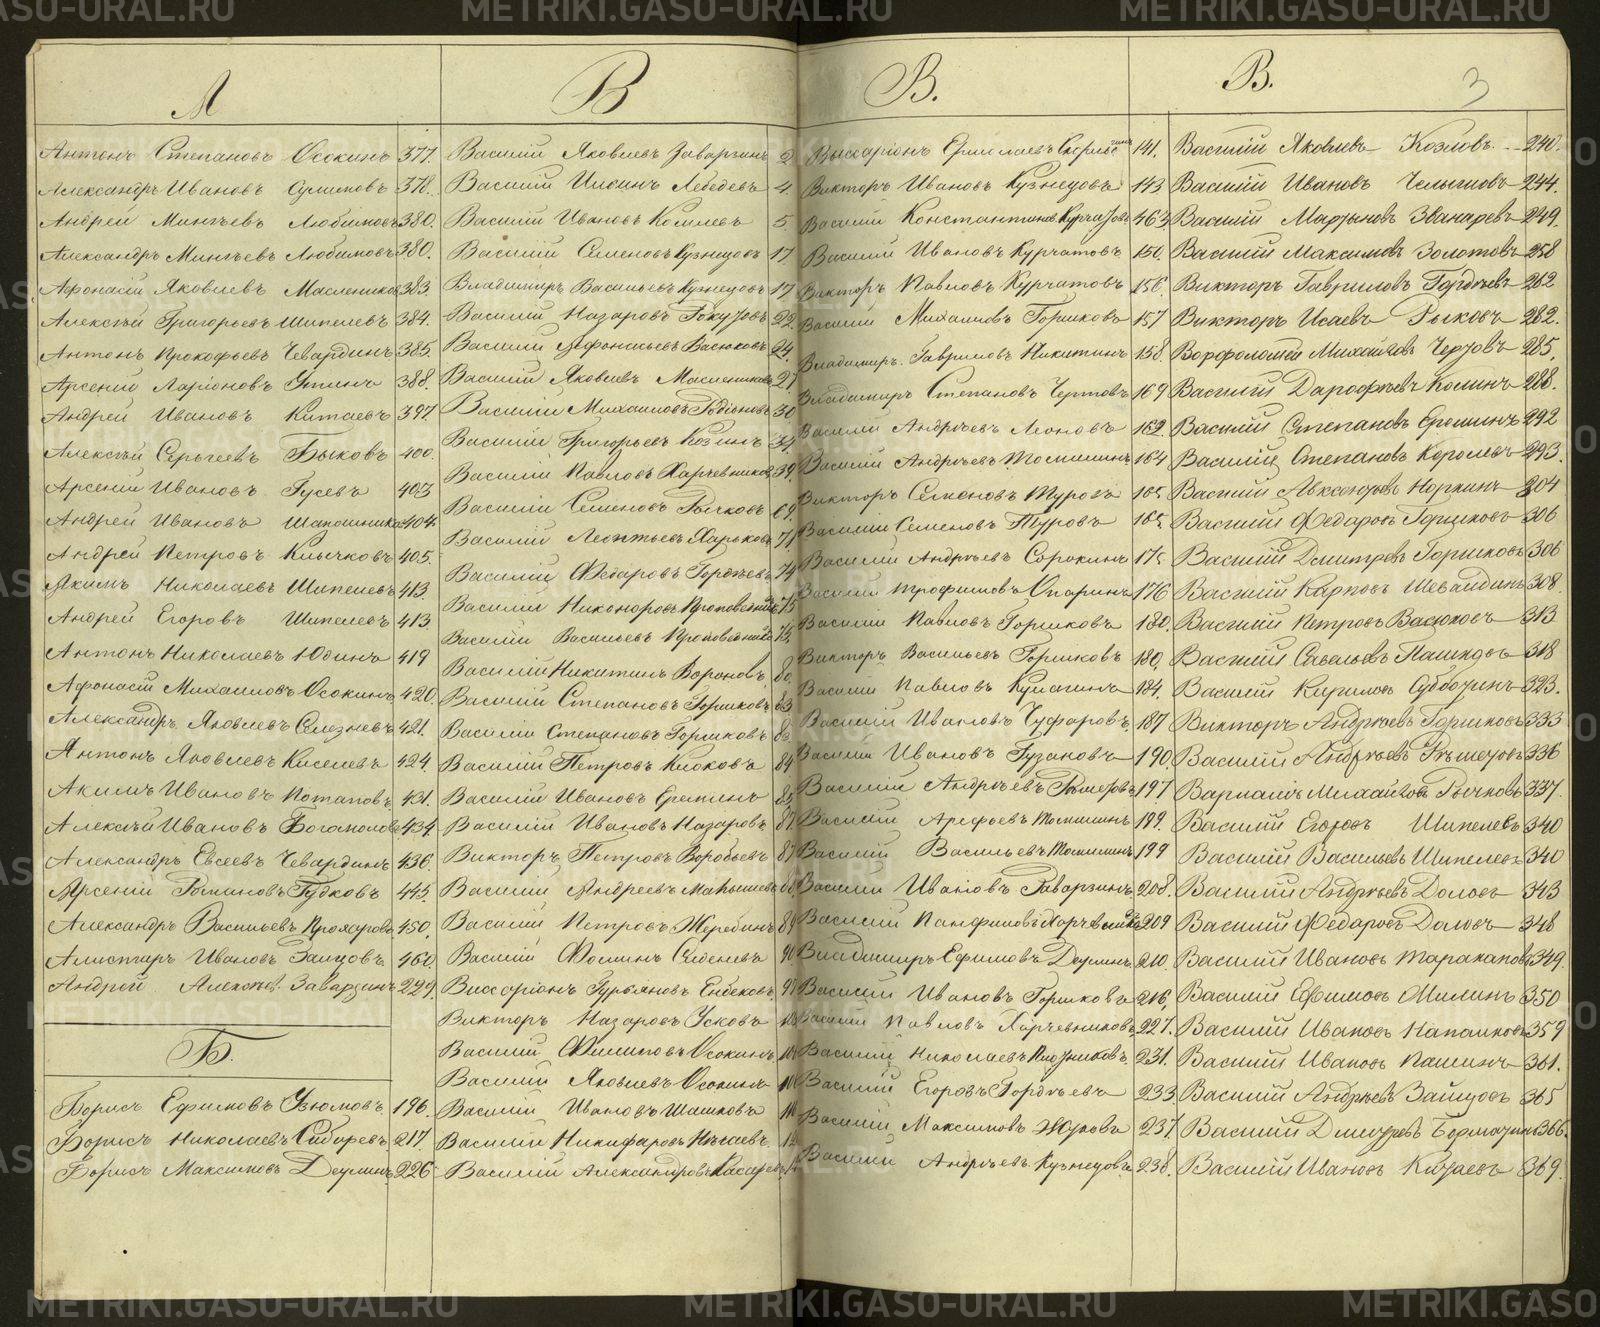 А
Антонъ Степановъ Осокинъ 377.
Александръ Ивановъ 378.
Андрей Минѣевъ Любимовъ 380.
Александръ Минѣевъ Любимовъ 380.
Афонасій Яковлевъ Маслениковъ 383.
Алексѣй Григорьевъ Шипелевъ 384.
Антонъ Прокофьевъ Чевардинъ 385.
Арсеній Ларіоновъ Утинъ 388.
Андрей Ивановъ Китаевъ 397
Алексѣй Сергѣевъ Быковъ 400.
Арсеній Ивановъ Гусевъ 403
Андрей Ивановъ Шапошниковъ 404.
Андрей Петровъ Клычковъ 405.
Якимъ Николаевъ Шипелевъ 413.
Андрей Егоровъ Шипелевъ 413.
Антонъ Николаевъ Юдинъ 419
Афонасій Михаиловъ Осокинъ 420.
Александръ Яковлевъ Селезневъ 421.
Антонъ Яковлевъ Киселевъ 424.
Акимъ Ивановъ Потаповъ 431.
Алексѣй Ивановъ Богомоловъ 434.
Александръ Евсеевъ Чевардинъ 436.
Арсеній Романовъ Гудковъ 445.
Александръ Васильевъ 450.
Ивановъ Зайцовъ 460.
Андрей Алексѣев. Заварзинъ 229.
Б.
Борисъ Ефимовъ Изюмовъ 196.
Борисъ Николаевъ Сибиревъ 217
Борисъ Максимовъ Деулинъ 226
В
Василій Яковлевъ Заварзинъ 2.
Василій Лебедевъ 4.
Василій Ивановъ Кошелевъ 5.
Василій Семеновъ Кузнецовъ 17
Владимиръ Васильевъ Кузнецовъ 17
Василій Назаровъ 22.
Василій Афонасьевъ Васюковъ 24.
Василій Яковлевъ Маслениковъ 27
Василій Михаиловъ Родіоновъ 30
Василій Григорьевъ Козинъ 34.
Василій Павловъ Харчевниковъ 39.
Василій Семеновъ Рычковъ 69.
Василій Леонтьевъ Харьковъ 71
Василій Федоровъ Гордѣевъ 74
Василій Никоноровъ Проповедниковъ 75
Василій Васильевъ Проповедниковъ 75.
Василій Никитинъ Вороновъ 80.
Василій Степановъ Горшковъ 83
Василій Степановъ Горшковъ 83.
Василій Петровъ Клюковъ 84
Василій Ивановъ Ереминъ
Василій Ивановъ Назаровъ 87.
Викторъ Петровъ Воробьевъ 87
Василій Андреевъ Матышевъ
Василій Петровъ Жеребинъ 89
Василій Фоминъ 90
Виссаріонъ Гурьяновъ
Викторъ Назаровъ Усковъ
Василій Филиповъ Осокинъ
Василій Яковлевъ Осокинъ
Василій Ивановъ Шашковъ
Василій Никифоровъ
Василій Александровъ
В.
Виссаріонъ Ермолаевъ 141.
Викторъ Ивановъ Кузнецовъ 143
Василій Константиновъ Курчатовъ 463
Василій Ивановъ Курчатовъ 150.
Викторъ Павловъ Курчатовъ 156.
Василій Михаиловъ Горшковъ 157
Владимиръ Гавриловъ Никитинъ 158.
Владимиръ Степановъ Чертовъ 169
Василій Андрѣевъ Леоновъ 162.
Василій Андрѣевъ Томилинъ 164
Викторъ Семеновъ Туровъ 165.
Василій Семеновъ Туровъ 165.
Василій Андрѣевъ Сорокинъ 175.
Василій Трофимовъ Опаринъ 176
Василій Павловъ Горшковъ 180.
Викторъ Васильевъ Горшковъ 180.
Василій Павловъ Кулагинъ 184.
Василій Ивановъ Чуфаровъ 187
Василій Ивановъ Гузановъ 190.
Василій Андрѣевъ 197
Василій Арефьевъ Томилинъ 199.
Василій Васильевъ Томилинъ 199
Василій Ивановъ Заварзинъ 208.
Василій Панфиловъ Харчевниковъ 209
Владимиръ Ефимовъ Деулинъ 210.
Василій Ивановъ Горшковъ 216.
Василій Павловъ Харчевниковъ 227.
Василій Николаевъ Плотниковъ 231.
Василій Егоровъ Гордѣевъ 233
Василій Максимовъ Жуковъ 237.
Василій Андрѣевъ Кузнецовъ 238.
В. 3
Василій Яковлевъ Козловъ 240.
Василій Ивановъ Челышовъ 244.
Василій Мартыновъ Званаревъ 249.
Василій Максимовъ Золотовъ 258
Викторъ Гавриловъ Гордѣевъ 262
Викторъ Исаевъ Рыковъ 282.
Ворфоломей Михайловъ Чертовъ 285.
Василій Дарофѣевъ 288.
Василій Степановъ Ерошинъ 292
Василій Степановъ Королевъ 293.
Василій Авксентьевъ Норкинъ 304
Василій Федаровъ Горшковъ 306
Василій Дмитревъ Горшковъ 306
Василій Карповъ Шевалдинъ 308.
Василій Петровъ Васюковъ 313
Василій Савельевъ 318
Василій Кириловъ Субботинъ 323.
Викторъ Андрѣевъ Горшковъ 333
Василій Андрѣевъ Рѣшетовъ 336
Варламъ Михайловъ Рычковъ 337.
Василій Егоровъ Шипелевъ 340
Василій Васильевъ Шипелевъ 340
Василій Андрѣевъ Доловъ 343
Василій Федаровъ Доловъ 348
Василій Ивановъ Таракановъ 349.
Василій Ефимовъ Милинъ 350
Василій Ивановъ Напалковъ 359
Василій Ивановъ Пашинъ 361.
Василій Андрѣевъ Зайцовъ 365
Василій Дмитревъ Бормотинъ 366.
Василій Ивановъ Китаевъ 369.
METRIKI.GASO-URAL.RU